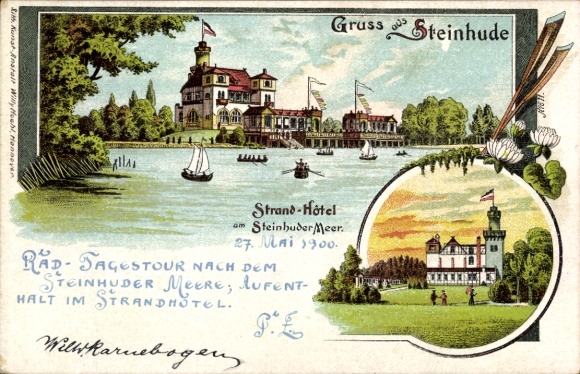 Gruss aus Steinhude
Strand-Hôtel
am Steinhuder Meer.
27. Mai 1900.
RAD-TAGESTOUR NACH DEM
STEINHUDER MEERE; AUFENT-
HALT IM STRANDHÔTEL.
Lith. Kunst-Anstalt Willy Hecht, Hannover.